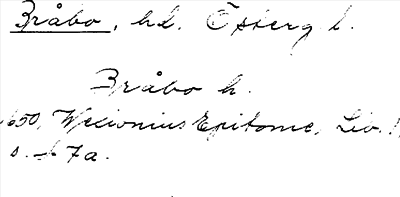 Bråbo, hd. Östergötl.
Bråbo h.
1650, Wexionius Epitome, Lib. 1,
s. 7a.